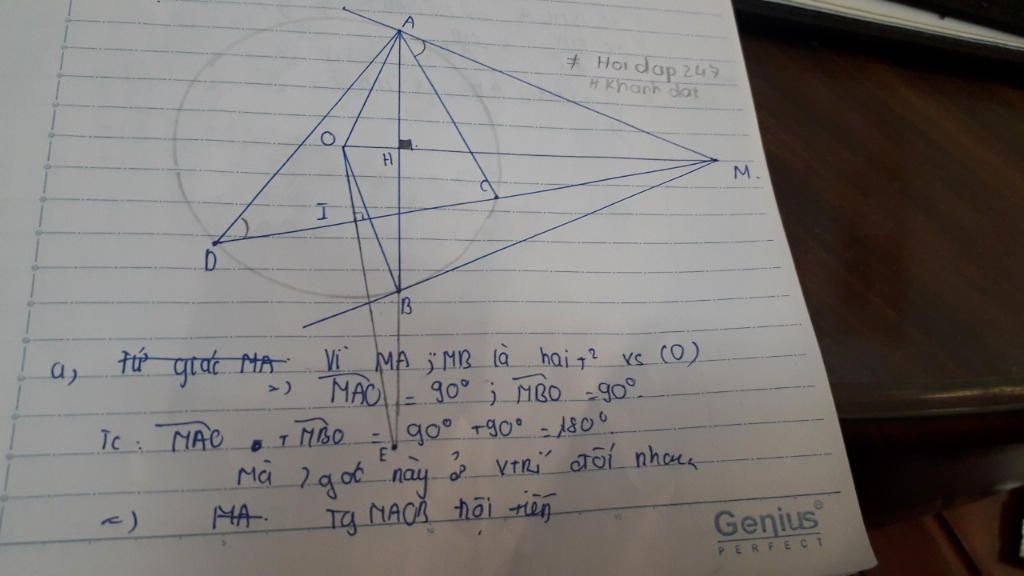 A
≠ Hoidap247
# Khanh dat
O
H
M.
C
I
D
B
a, Tứ giác MA Vì MA ; MB là hai t² vs (O)
=) MAO = 90° ; MBO = 90°.
Tc : MAO + MBO = 90° + 90° = 180°
E
Mà 2 góc này ở vtrí đối nhau
=) MA Tg MAOB nội tiếp
Genius®
PERFECT